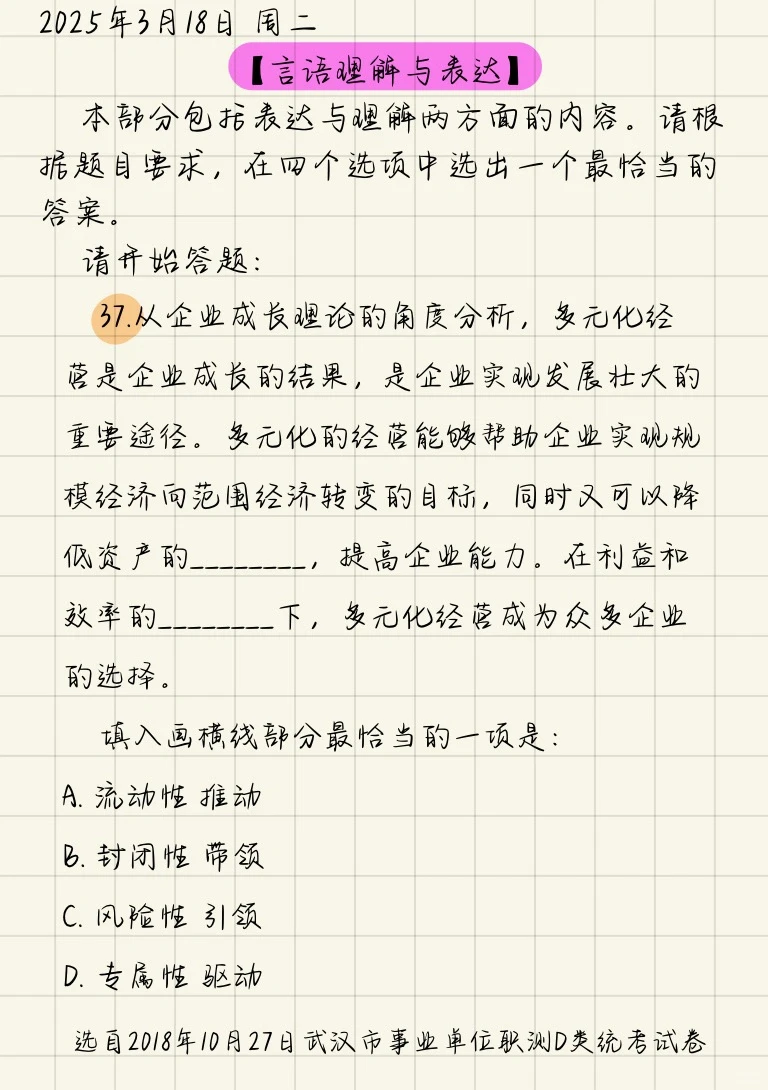 2025年3月18日 周二
【言语理解与表达】
本部分包括表达与理解两方面的内容。请根
据题目要求，在四个选项中选出一个最恰当的
答案。
请开始答题：
37.从企业成长理论的角度分析，多元化经
营是企业成长的结果，是企业实现发展壮大的
重要途径。多元化的经营能够帮助企业实现规
模经济向范围经济转变的目标，同时又可以降
低资产的________，提高企业能力。在利益和
效率的________下，多元化经营成为众多企业
的选择。
填入画横线部分最恰当的一项是：
A. 流动性 推动
B. 封闭性 带领
C. 风险性 引领
D. 专属性 驱动
选自2018年10月27日武汉市事业单位职测D类统考试卷